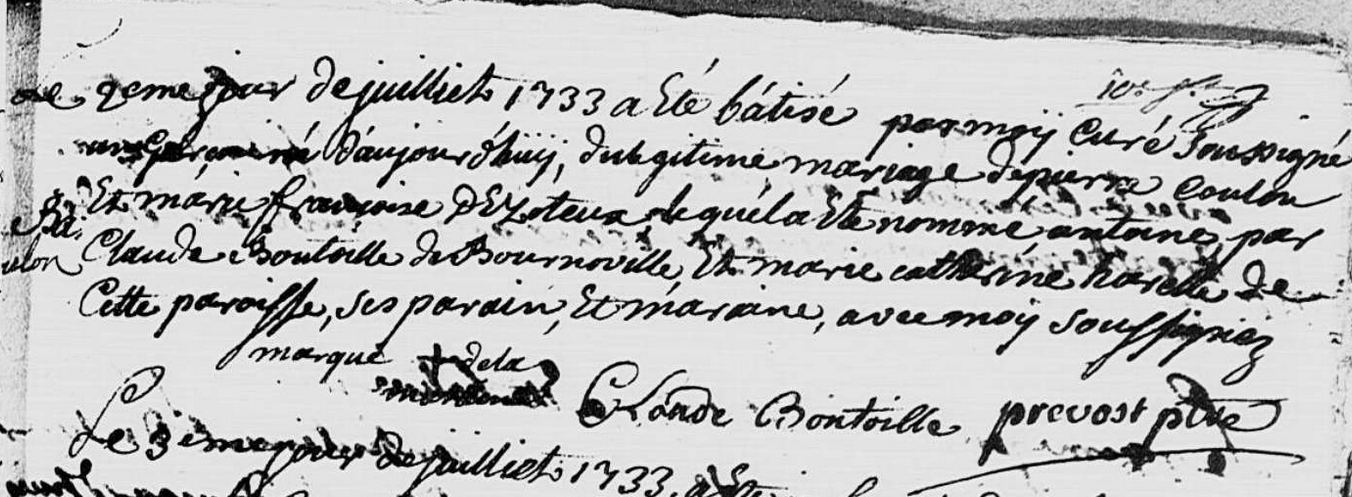 Le 2eme jour de juilliet 1733 a Eté bátisé par moÿ Curé Soussigné
un garcon né d'aujourd'huÿ, du legitime mariage de pierre Coulon
Et márie françoise DEzoteux lequel a Eté nommé antoine par
Claude Boutoille de Bournoville, Et marie catherine harelle de
Cette paroisse, ses parain, Et maraine, avec moÿ soussignez
marque + de la
maraine Claude Boutoille prevost ptre
Le 3eme jour de juilliet 1733, a Eté